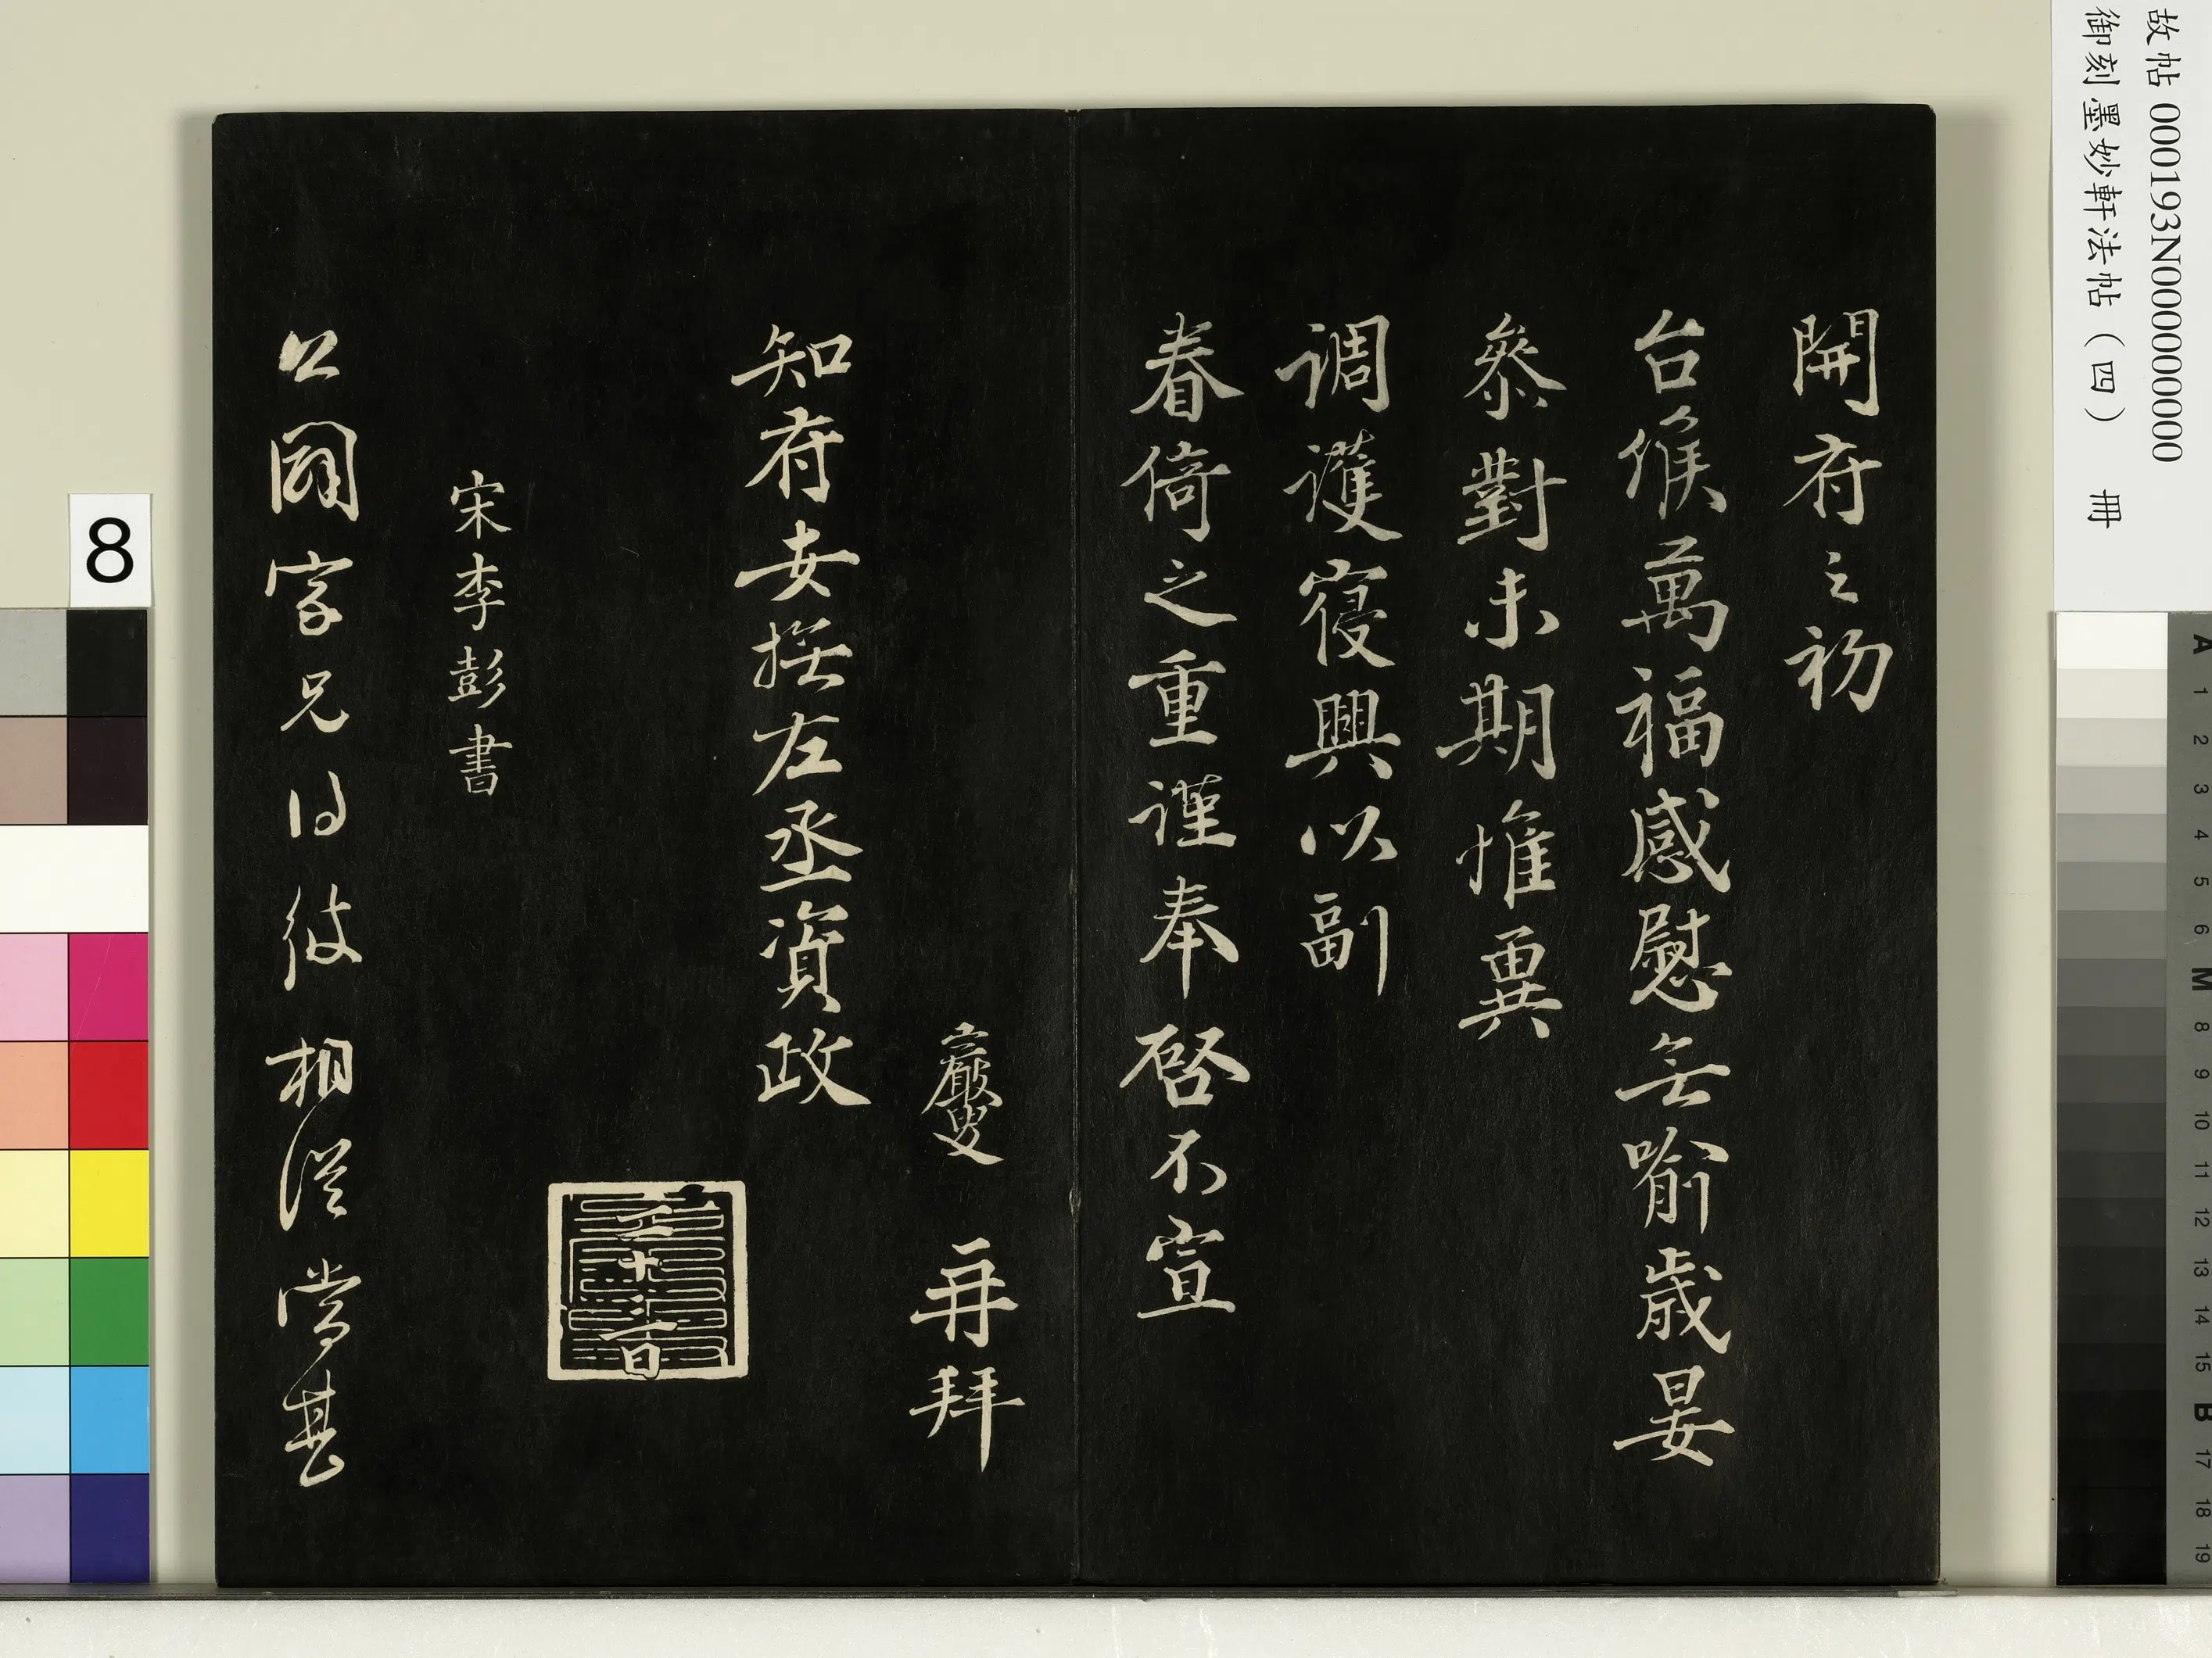 故帖 000193N000000000
御刻墨妙軒法帖（四） 冊
開府之初
台候萬福感慰無喻歲晏
參對未期惟冀
調護寢興以副
眷倚之重謹奉啓不宣
巖叟 再拜
知府安撫左丞資政
宋李彭書
公字兄得彼相從當甚
8
A
1
2
3
4
5
6
M
8
9
10
11
12
13
14
15
B
17
18
19